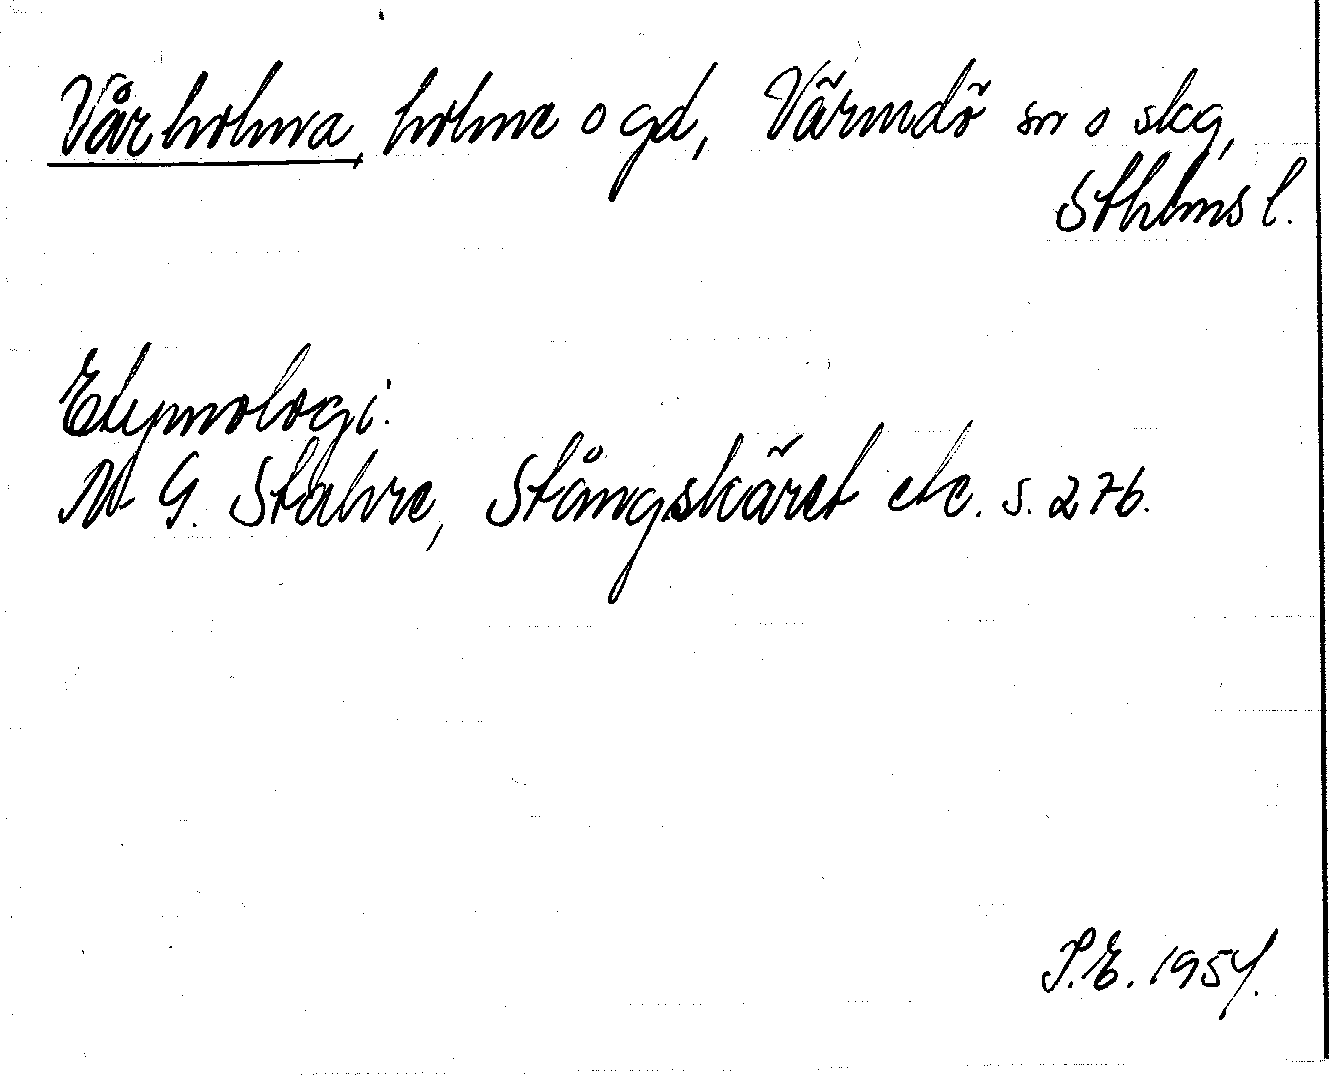 Vårholma, holme o gd, Värmdö sn o skg,
Sthlms l.
Etymologi:
N G. Stahre, Stångskäret etc. s. 276.
P.E. 1954.